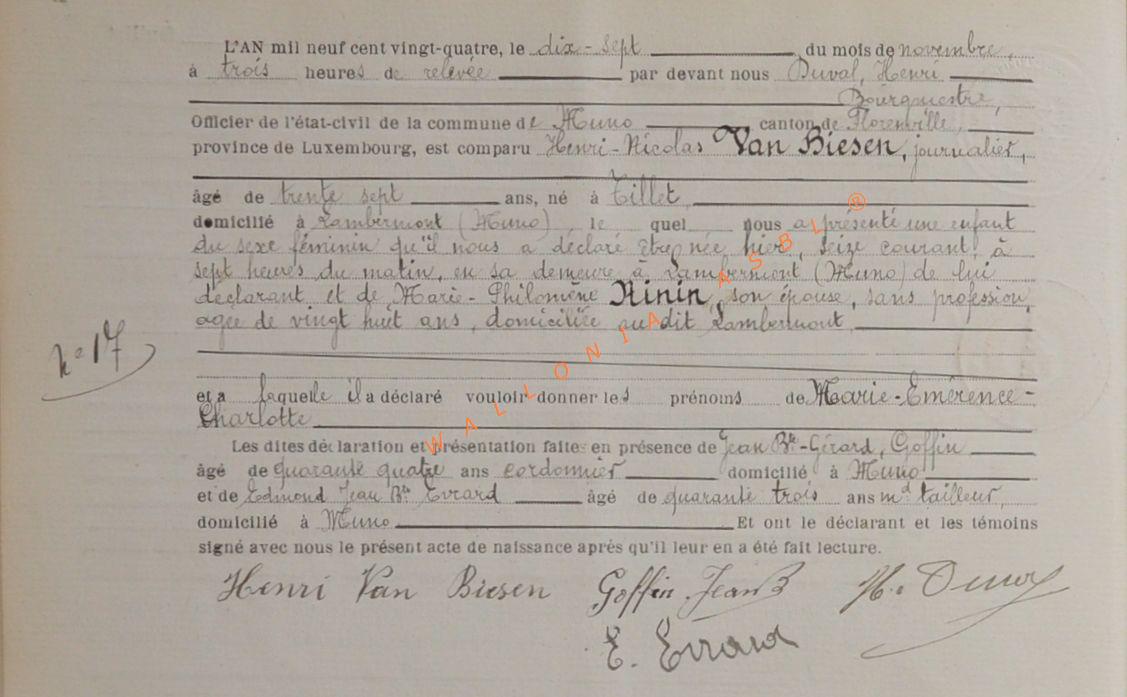 L'AN mil neuf cent vingt-quatre, le dix-sept du mois de novembre,
à trois heures de relevée par devant nous Duval, Henri
Bourgmestre,
Officier de l'état-civil de la commune de Muno canton de Florenville,
province de Luxembourg, est comparu Henri-Nicolas Van Biesen, journalier,
âgé de trente sept ans, né à Tillet,
domicilié à Lambermont (Muno), le quel nous a présenté une enfant
du sexe féminin qu'il nous a déclaré être née hier, seize courant, à
sept heures du matin, en sa demeure à Lambermont (Muno) de lui
déclarant et de Marie-Philomène Ninin, son épouse, sans profession,
agée de vingt huit ans, domiciliée au dit Lambermont,
n° 17
et a laquelle il a déclaré vouloir donner les prénoms de Marie-Emérence-
Charlotte
Les dites déclaration et présentation faites en présence de Jean Bte-Gérard, Goffin
âgé de quarante quatre ans cordonnier domicilié à Muno
et de Edmond Jean Bte Evrard âgé de quarante trois ans md tailleur,
domicilié à Muno Et ont le déclarant et les témoins
signé avec nous le présent acte de naissance après qu'il leur en a été fait lecture.
Henri Van Biesen Goffin Jean B H. Duval
E. Evrard
WALLONIA ASBL ®